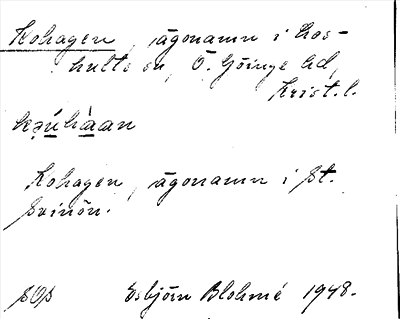 Kohagen, ägonamn i Los-
hults sn, Ö. Göinge hd,
Krist. l.
kǝu̲hàa̲an
Kohagen, ägonamn i St.
Svinön.
SOS Esbjörn Blohmé 1948.